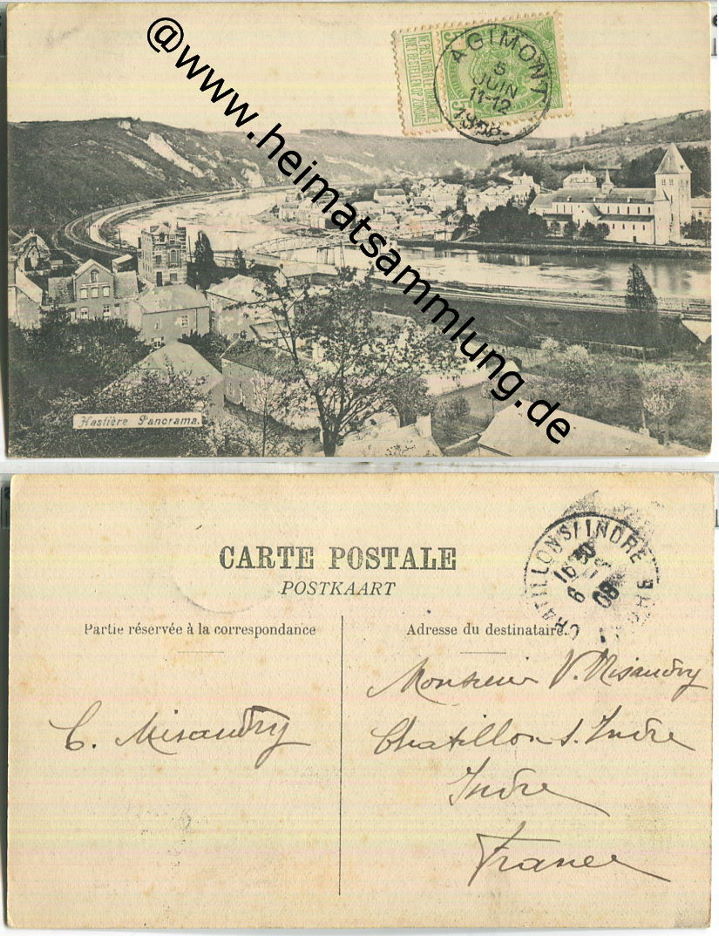 @www.heimatsammlung.de
AGIMONT
5
JUIN
11-12
1908
Hastière Panorama.
CARTE POSTALE
POSTKAART
CHATILLON S/ INDRE
16 30
6
08
Partie réservée à la correspondance
Adresse du destinataire.
Monsieur V. Misandry
C. Misandry
Chatillon s. Indre
Indre
France